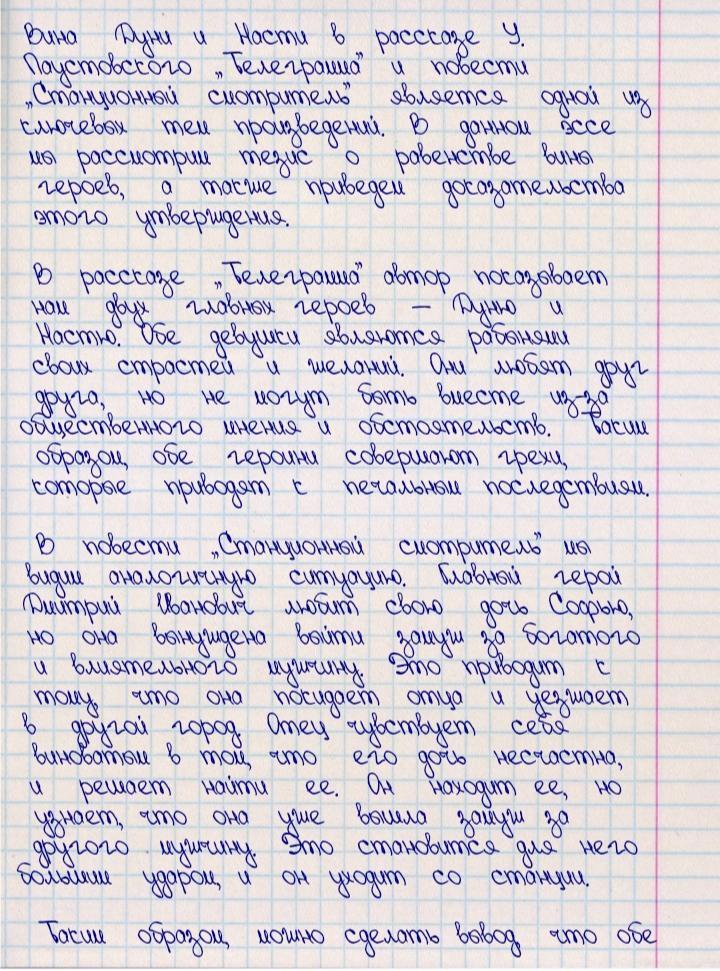 Вина Дуни и Насти в рассказе У.
Паустовского „Телеграмма" и повести
„Станционный смотритель" является одной из
ключевых тем произведений. В данном эссе
мы рассмотрим тезис о равенстве вины
героев, а также приведем доказательства
этого утверждения.

В рассказе „Телеграмма" автор показывает
нам двух главных героев — Дуню и
Настю. Обе девушки являются рабынями
своих страстей и желаний. Они любят друг
друга, но не могут быть вместе из-за
общественного мнения и обстоятельств. Таким
образом, обе героини совершают грехи,
которые приводят к печальным последствиям.

В повести „Станционный смотритель" мы
видим аналогичную ситуацию. Главный герой
Дмитрий Иванович любит свою дочь Софью,
но она вынуждена выйти замуж за богатого
и влиятельного мужчину. Это приводит к
тому, что она покидает отца и уезжает
в другой город. Отец чувствует себя
виноватым в том, что его дочь несчастна,
и решает найти ее. Он находит ее, но
узнает, что она уже вышла замуж за
другого мужчину. Это становится для него
большим ударом, и он уходит со станции.

Таким образом, можно сделать вывод, что обе